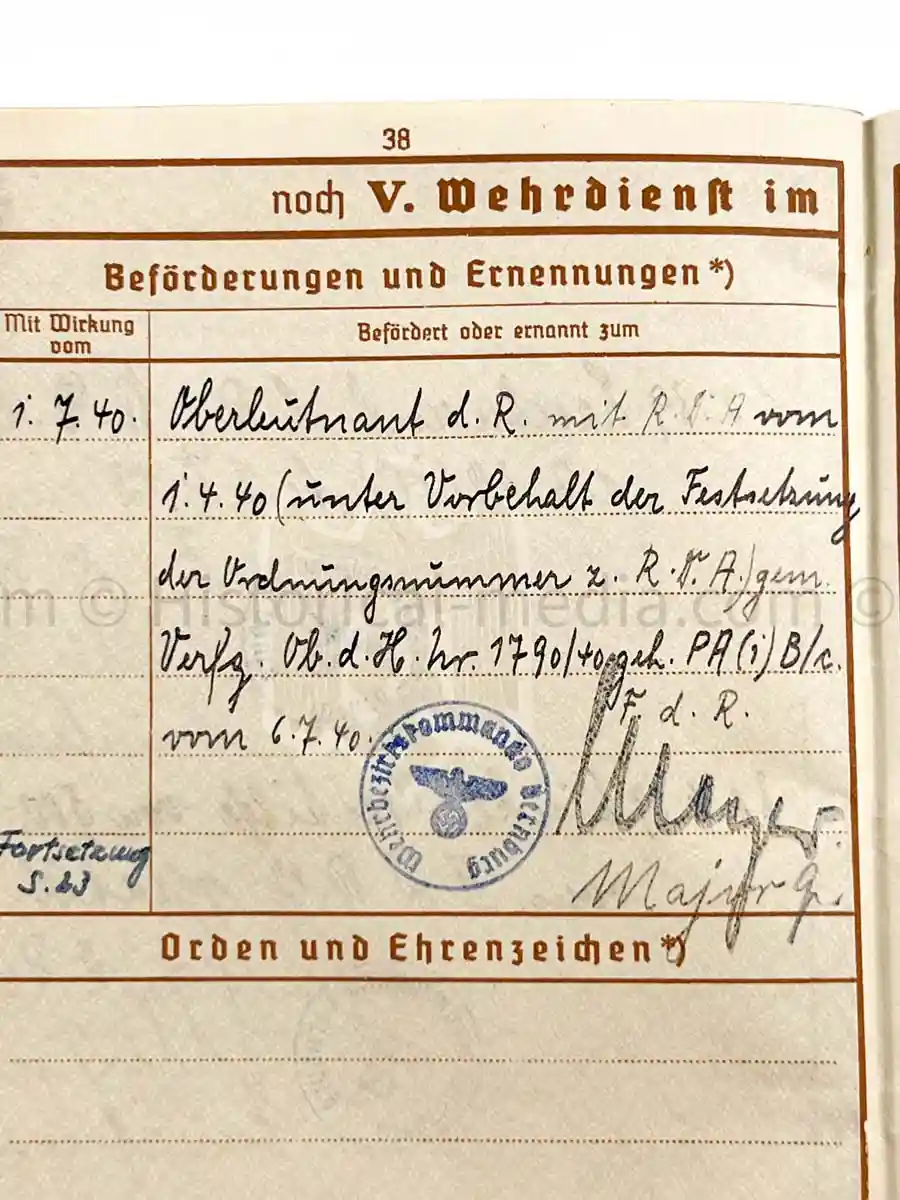 38
noch V. Wehrdienst im
Beförderungen und Ernennungen*)
Mit Wirkung vom
Befördert oder ernannt zum
1. 7. 40. Oberleutnant d. R. mit R. D. A vom
1. 4. 40 (unter Vorbehalt der Festsetzung
der Ordnungsnummer z. R. D. A.) gem.
Verfg. Ob. d. H. Nr. 1790/40 geh. PA (1) B/c.
vom 6. 7. 40.
F. d. R.
Wehrbezirkskommando Bernburg
Major
Fortsetzung
S. 23
Orden und Ehrenzeichen*)
m © Historical-media.com ©